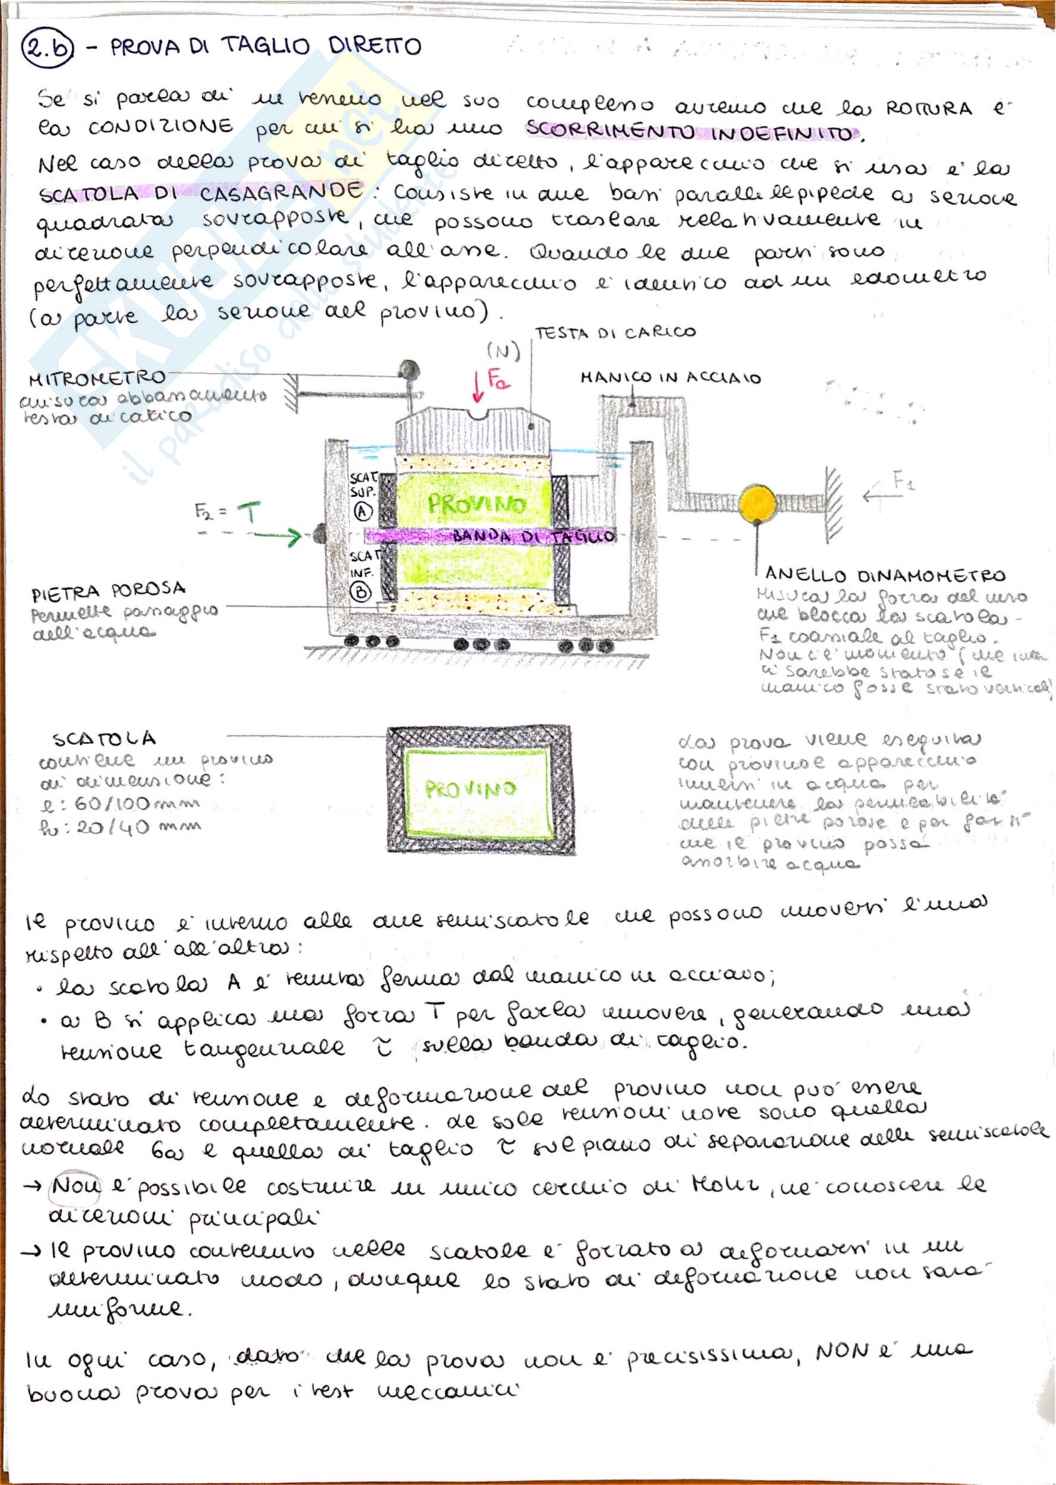 2.b - PROVA DI TAGLIO DIRETTO
Se si parla di un terreno nel suo complesso avremo che la ROTTURA è
la CONDIZIONE per cui si ha uno SCORRIMENTO INDEFINITO.
Nel caso della prova di taglio diretto, l'apparecchio che si usa è la
SCATOLA DI CASAGRANDE: Consiste in due basi parallelepipede a sezione
quadrata sovrapposte, che possono traslare relativamente in
direzione perpendicolare all'asse. Quando le due parti sono
perfettamente sovrapposte, l'apparecchio è identico ad un edometro
(a parte la sezione del provino).
TESTA DI CARICO
(N)
Fa
MANICO IN ACCIAIO
MITROMETRO
misura abbassamento
testa di carico
SCAT.
SUP.
A
PROVINO
F1
F2 = T
BANDA DI TAGLIO
SCAT.
INF.
B
PIETRA POROSA
Permette passaggio
dell'acqua
ANELLO DINAMOMETRO
Misura la forza del
che blocca la scatola -
F1 coassiale al taglio.
Non c'è momento (che
ci sarebbe stato se il
manico fosse stato verticale)
SCATOLA
contiene un provino
di dimensione:
l: 60/100 mm
h: 20/40 mm
PROVINO
La prova viene eseguita
con provino e apparecchio
immersi in acqua per
mantenere la permeabilità
delle pietre porose e per far sì
che il provino possa
assorbire acqua
Il provino è interno alle due semiscatole che possono muoversi l'una
rispetto all'all'altra:
• la scatola A è tenuta ferma dal manico in acciaio;
• a B si applica una forza T per farla muovere, generando una
tensione tangenziale τ sulla banda di taglio.
Lo stato di tensione e deformazione del provino non può essere
determinato completamente. Le sole tensioni note sono quella
normale σa e quella di taglio τ sul piano di separazione delle semiscatole
→ Non è possibile costruire un unico cerchio di Mohr, né conoscere le
direzioni principali
→ Il provino contenuto nelle scatole è forzato a deformarsi in un
determinato modo, dunque lo stato di deformazione non sarà
uniforme.
In ogni caso, dato che la prova non è precisissima, NON è una
buona prova per i test meccanici
skuola.net
il paradiso dello studente